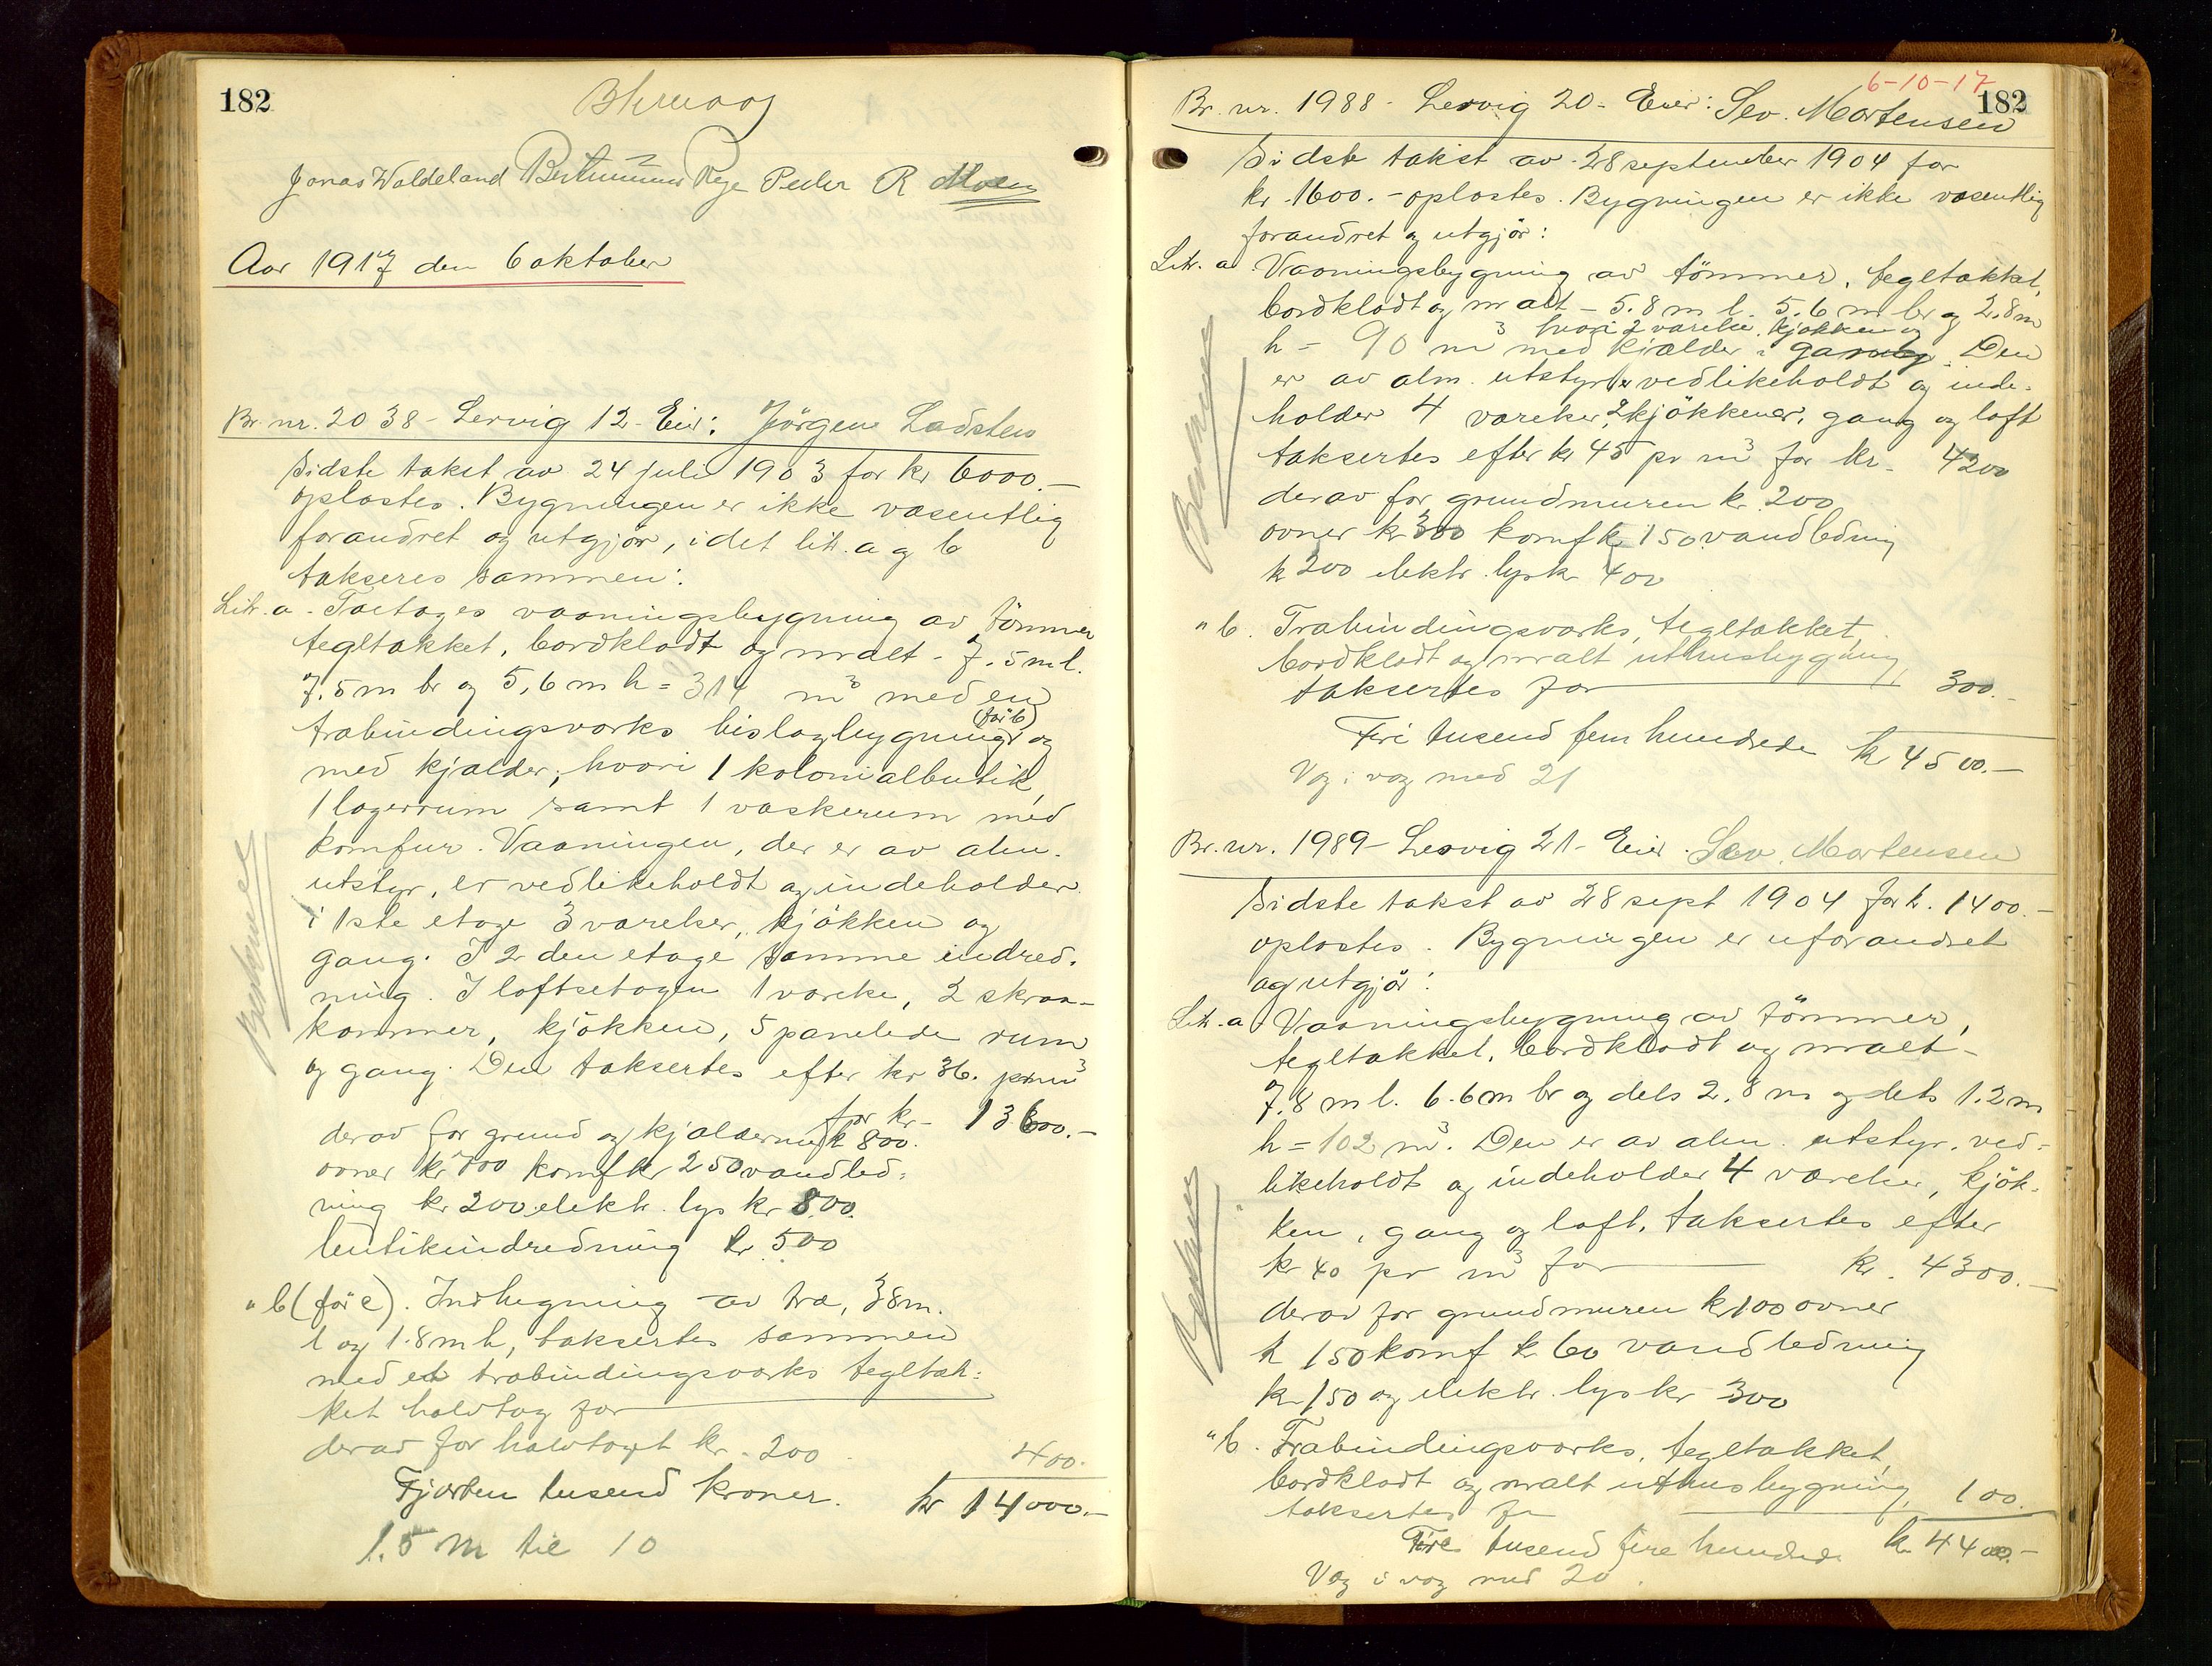 182
Jonas Waldeland Rege Peder R Moen
Aar 1917 den 6 oktober
Br. nr. 2038 - Lervig 12 - Eier: Jörgen Ladsten
Sidste takst av 24 juli 1903 for kr 6000.-
oplæstes. Bygningen er ikke væsentlig
forandret og utgjör, idet litr. a og b
takseres sammen:
Litr. a - Toetages vaaningsbygning av tömmer
tegltækket, bordklædt og malt - 7.5 m l.
7.5 m br og 5,6 m h = 314 m³ med en
træbindingsværks bislagbygning (för b) og
med kjælder, hvori 1 kolonialbutik,
1 lagerrum samt 1 vaskerum med
komfur. Vaaningen, der er av alm.
utstyr, er vedlikeholdt og indeholder
i 1ste etage 3 værelser, kjökken og
gang. I 2den etage samme indred-
ning. I loftsetagen 1 værelse, 2 skraa-
kammer, kjökken, 5 panelede rum
og gang. Den taksertes efter kr 36. pr m³
for kr - 13600.-
derav for grund og kjældermur kr 800.
ovner kr 700 komf kr 250 vandled-
ning kr 200 elektr. lys kr 800.
butikindredning kr 500
" b (för c). Indhegning av træ, 38 m.
l og 1.8 m h, taksertes sammen
med et træbindingsværks tegltæk-
ket halvtag for
derav for halvtaget kr. 200 400.
Fjorten tusend kroner. kr 14000.-
1.5 m til 10
6-10-17
182
Br. nr. 1988 - Lervig 20 - Eier: Sev. Mortensen
Sidste takst av 28 september 1904 for
kr. 1600.- oplæstes. Bygningen er ikke væsentlig
forandret og utgjör:
Litr. a Vaaningsbygning av tömmer, tegltækket,
bordklædt og malt - 5.8 m l. 5.6 m br og 2.8 m
hvori 2 værelse, kjøkken og
h = 90 m³ med kjælder i gang. Den
er av alm. utstyr, er vedlikeholdt og inde-
holder 4 værelser, 2 kjökkener, gang og loft
taksertes efter kr 45 pr m³ for kr - 4200
derav for grundmuren kr 200
ovner kr 300 komf kr 150 vandledning
kr 200 elektr. lys kr 400
" b. Træbindingsværks, tegltækket,
bordklædt og malt uthusbygning,
taksertes for 300.-
Fire tusend fem hundrede kr 4500.-
Væg i væg med 21
Br. nr. 1989 - Lervig 21 - Eier. Sev. Mortensen
Sidste takst av 28 sept 1904 for kr. 1400.-
oplæstes. Bygningen er uforandret
og utgjör:
Litr. a Vaaningsbygning av tömmer,
tegltækket, bordklædt og malt -
7.8 m l. 6.6 m br og dels 2.8 m og dels 1.2 m
h = 102 m³. Den er av alm. utstyr, ved-
likeholdt og indeholder 4 værelser, kjök-
ken, gang og loft, taksertes efter
kr 40 pr m³ for kr. 4300.-
derav for grundmuren kr 100 ovner
kr 150 komf kr 60 vandledning
kr 150 og elektr. lys kr 300
" b. Træbindingsværks, tegltækket,
bordklædt og malt uthusbygning, 100.
taksertes for
Fire tusend fire hundrede kr 4400.-
Væg i væg med 20.